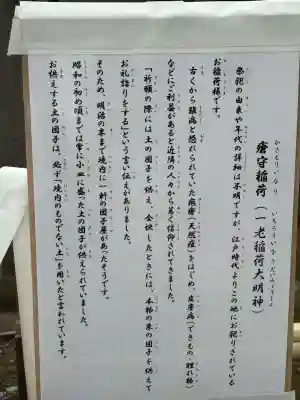 瘡守稲荷（一老稲荷大明神）
かさもりいなり
いちろういなりだいみょうじん
祭祀の由来や年代の詳細は不明ですが、江戸時代よりこの地にお祀りされている
お稲荷様です。
古くから難病と恐れられていた疱瘡（天然痘）をはじめ、皮膚病（できもの・腫れ物）
などにご利益があると近隣の人々から篤く信仰されてきました。
「祈願の際には土の団子を供え、全快したときには、本物の米の団子を供えて
お礼詣りをする」という言い伝えがありました。
そのため、明治の末まで境内に一軒の団子屋があったそうです。
昭和の初め頃までは常に小皿に盛った土の団子が供えられていました。
お供えする土の団子は、必ず「境内のものでない土」を用いたと言われています。